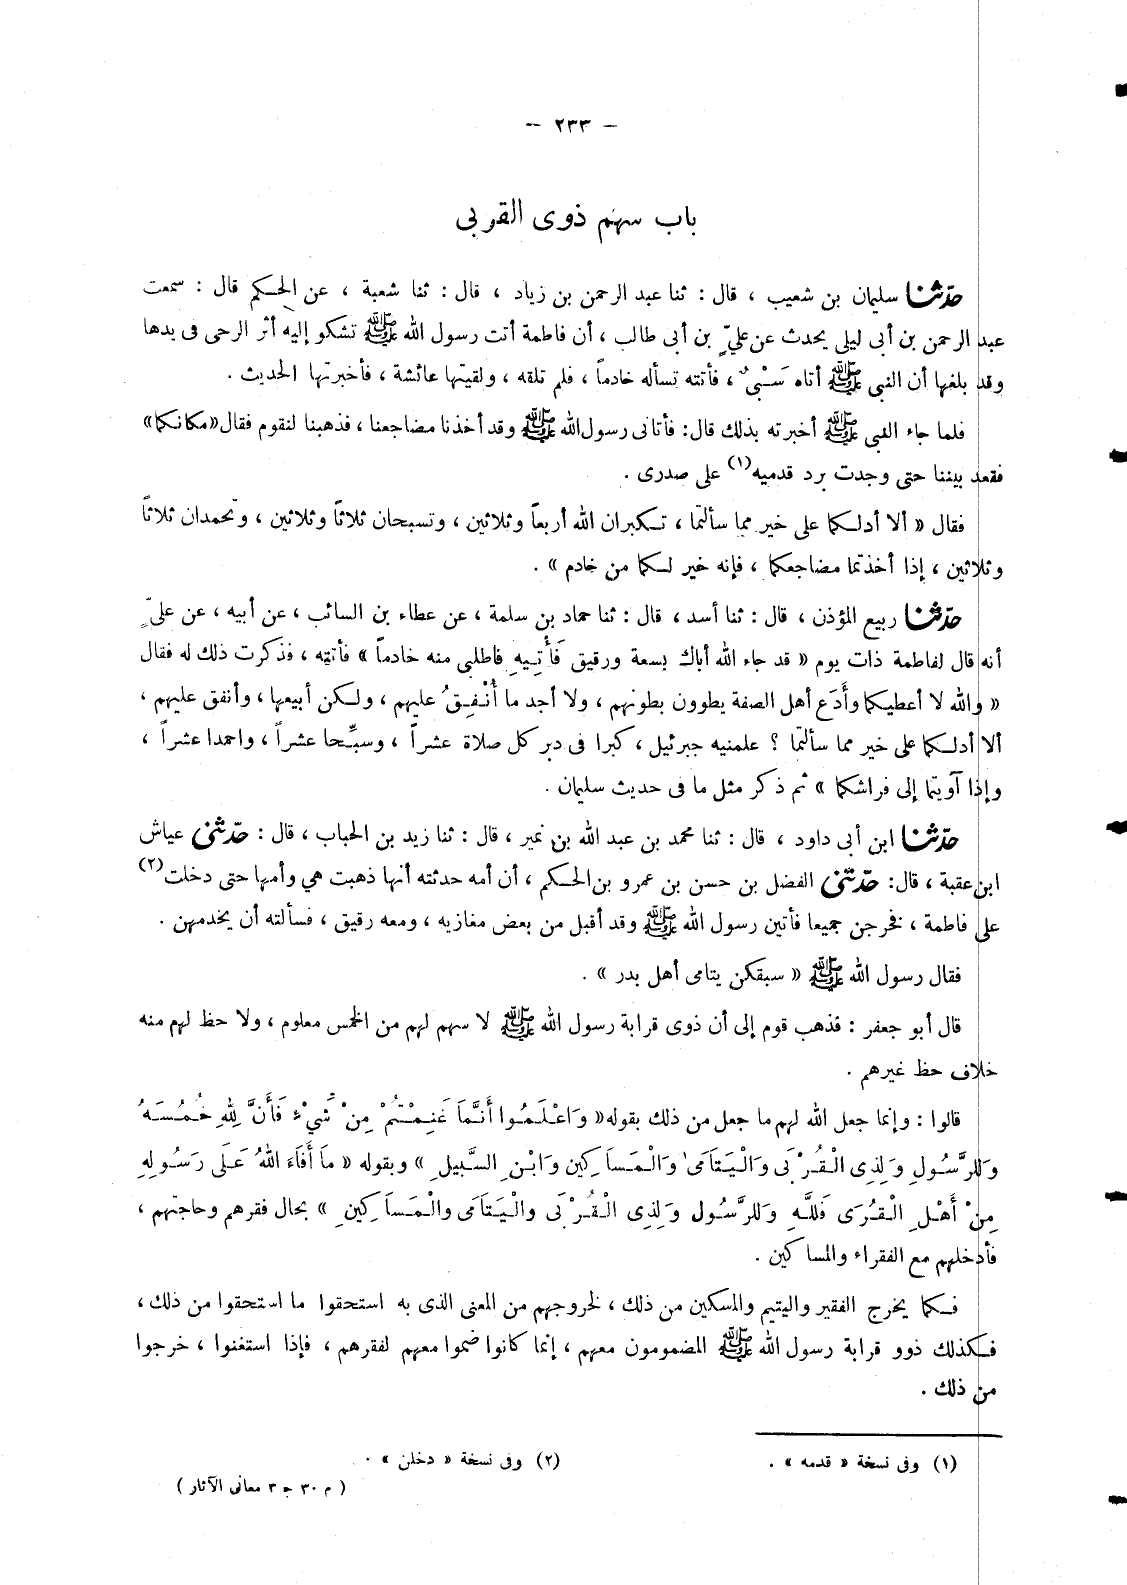 — ٢٣٣ —
باب سهم ذوى القربى
حدّثنا سليمان بن شعيب ، قال : ثنا عبد الرحمن بن زياد ، قال : ثنا شعبة ، عن الحكم قال : سمعت
عبد الرحمن بن أبى ليلى يحدث عن علىّ بن أبى طالب ، أن فاطمة أتت رسول الله ﷺ تشكو إليه أثر الرحى فى يدها
وقد بلغها أن النبى ﷺ أتاه سَبْىٌ ، فأتته تسأله خادماً ، فلم تلقه ، ولقيتها عائشة ، فأخبرتها الحديث .
فلما جاء النبى ﷺ أخبرته بذلك قال: فأتانى رسول الله ﷺ وقد أخذنا مضاجعنا ، فذهبنا لنقوم فقال«مكانكما»
فقعد بيننا حتى وجدت برد قدميه(١) على صدرى .
فقال « ألا أدلكما على خير مما سألتما ، تكبران الله أربعاً وثلاثين ، وتسبحان ثلاثاً وثلاثين ، وتحمدان ثلاثاً
وثلاثين ، إذا أخذتما مضاجعكما ، فإنه خير لكما من خادم » .
حدّثنا ربيع المؤذن ، قال : ثنا أسد ، قال : ثنا حماد بن سلمة ، عن عطاء بن السائب ، عن أبيه ، عن علىّ
أنه قال لفاطمة ذات يوم « قد جاء الله أباك بسعة ورقيق فَأْتِيهِ فاطلبى منه خادماً » فأتته ، فذكرت ذلك له فقال
« والله لا أعطيكما وأَدَع أهل الصفة يطوون بطونهم ، ولا أجد ما أُنْفِقُ عليهم ، ولكن أبيعها ، وأنفق عليهم ،
ألا أدلكما على خير مما سألتما ؟ علمنيه جبرئيل ، كبرا فى دبر كل صلاة عشراً ، وسبِّحا عشراً ، واحمدا عشراً ،
وإذا آويتما إلى فراشكما » ثم ذكر مثل ما فى حديث سليمان .
حدّثنا ابن أبى داود ، قال : ثنا محمد بن عبد الله بن نمير ، قال : ثنا زيد بن الحباب ، قال : حدّثنى عياش
ابن عقبة ، قال: حدّثنى الفضل بن حسن بن عمرو بن الحكم ، أن أمه حدثته أنها ذهبت هي وأمها حتى دخلت(٢)
على فاطمة ، فخرجن جميعا فأتين رسول الله ﷺ وقد أقبل من بعض مغازيه ، ومعه رقيق ، فسألته أن يخدمهن .
فقال رسول الله ﷺ « سبقكن يتامى أهل بدر » .
قال أبو جعفر : فذهب قوم إلى أن ذوى قرابة رسول الله ﷺ لا سهم لهم من الخمس معلوم ، ولا حظ لهم منه
خلاف حظ غيرهم .
قالوا : وإنما جعل الله لهم ما جعل من ذلك بقوله« وَاعْلَمُوا أَنَّمَا غَنِمْتُمْ مِنْ شَىْءٍ فَأَنَّ لِلّٰهِ خُمُسَهُ
وَلِلرَّسُولِ وَلِذِى الْقُرْبَى وَالْيَتَامَى وَالْمَسَاكِينِ وَابْنِ السَّبِيلِ » وبقوله « مَا أَفَاءَ اللهُ عَلَى رَسُولِهِ
مِنْ أَهْلِ الْقُرَى فَللهِ وَللرَّسُول وَلِذِى الْقُرْبَى والْيَتَامَى والْمَسَاكِينِ » بحال فقرهم وحاجتهم ،
فأدخلهم مع الفقراء والمساكين .
فكما يخرج الفقير واليتيم والمسكين من ذلك ، لخروجهم من المعنى الذى به استحقوا ما استحقوا من ذلك ،
فكذلك ذوو قرابة رسول الله ﷺ المضمومون معهم ، إنما كانوا ضموا معهم لفقرهم ، فإذا استغنوا ، خرجوا
من ذلك .
(١) وفى نسخة « قدمه » .
(٢) وفى نسخة « دخلن » .
( م ٣٠ ج ٣ معانى الآثار )